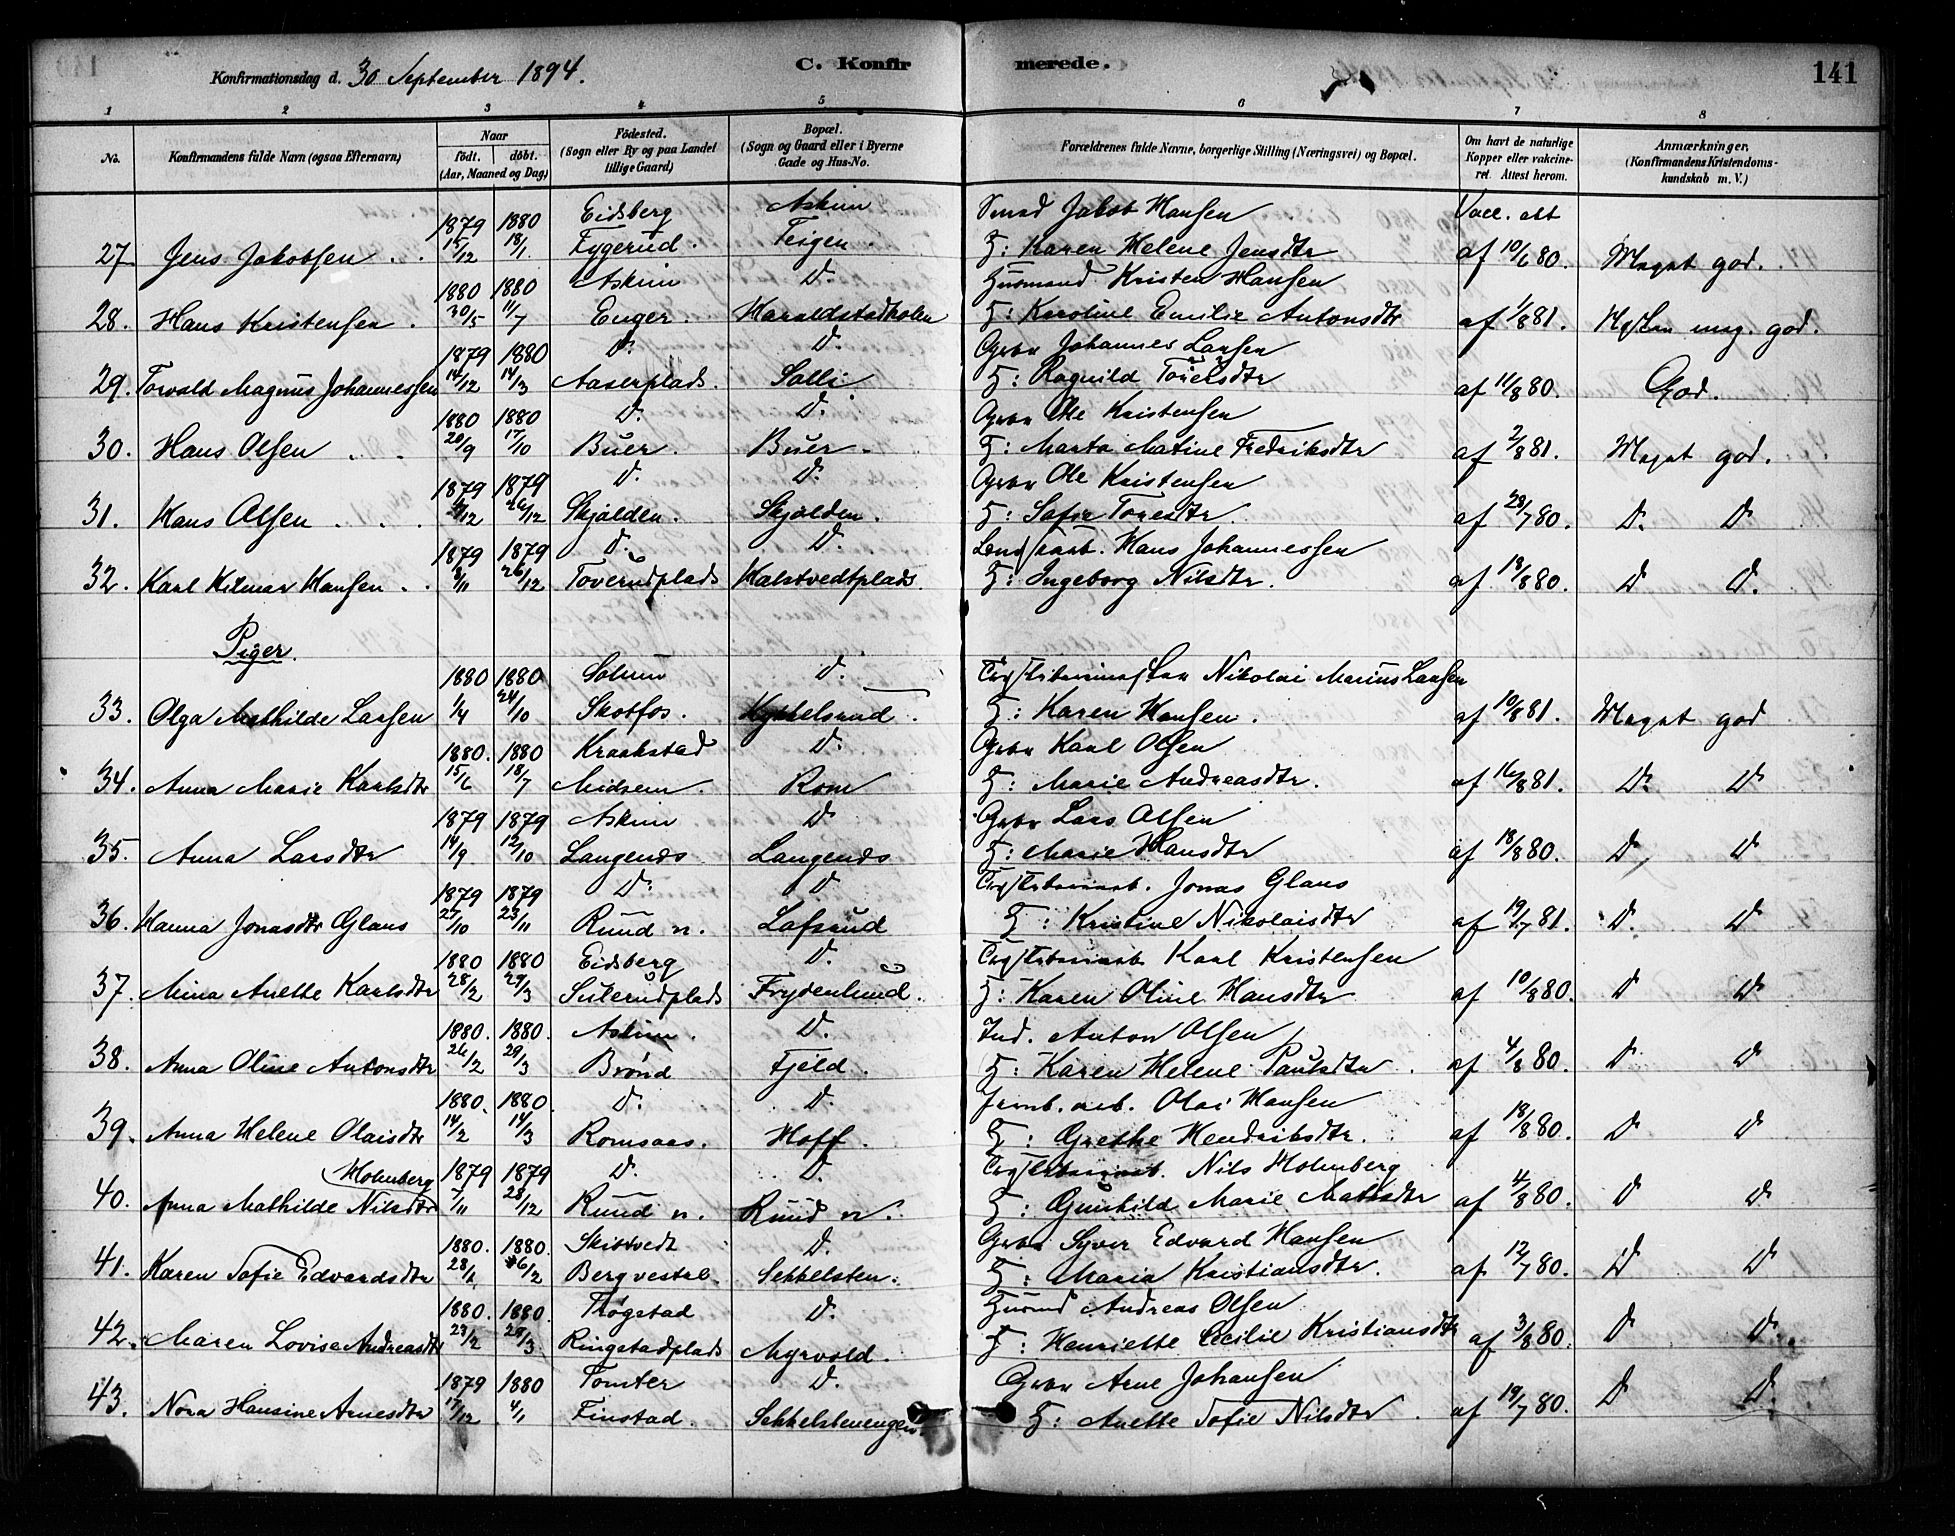 Konfirmationsdag d. 30 September 1894. C. Konfirmerede. 141
1 2 3 4 5 6 7 8
No. Konfirmandens fulde Navn (ogsaa Efternavn) Naar födt. döbt. (Aar, Maaned og Dag) Födested. (Sogn eller By og paa Landet tillige Gaard) Bopæl. (Sogn og Gaard eller i Byerne Gade og Hus-No. Forældrenes fulde Navne, borgerlige Stilling (Næringsvei) og Bopæl. Om havt de naturlige Kopper eller vakcineret. Attest herom. Anmærkninger. (Konfirmandens Kristendomskundskab m. V.)
1879 1880 Eidsberg Askim Smed Jakob Hansen Vacc. att
27. Jens Jakobsen 15/12 18/1 Fygerud. Teigen. H: Karen Helene Jensdtr af 10/6 80. Meget god.
1880 1880 Askim D. Husmand Kristen Hansen
28. Hans Kristensen. 30/5 11/7 Enger. Haraldstadholen H: Karoline Emilie Antonsdtr af 1/8 81. Næsten meg. god.
1879 1880 D. D. Grbr Johannes Larsen
29. Torvald Magnus Johannessen 14/12 14/3 Aaserplads. Salli H: Ragnild Torersdtr af 11/8 80. God.
1880 1880 D. D. Grbr Ole Kristensen
30. Hans Olsen 20/9 17/10 Buer. Buer. H: Marta Matine Fredriksdtr af 2/8 81. Meget god.
1879 1879 D. D. Grbr Ole Kristensen
31. Hans Olsen /12 26/12 Skjølden. Skjølden. H: Sofie Toresdtr. af 28/7 80. D. D.
1879 1879 D. D. Hans Johannessen
32. Karl Hilmar Hansen 8/11 26/12 Toverudplads Kalstvedtplads. H: Ingeborg Nilsdtr. af 18/8 80. D D.
Piger.
1880 1880 Solum D. Nikolai Marius Larsen
33. Olga Mathilde Larsen 1/4 24/10 Skotfos. Kykkelsrud. H: Karen Hansen. af 10/8 81. Meget god
1880. 1880 Kraakstad D. Grbr Karl Olsen
34. Anna Marie Karlsdtr 15/6 18/7 Midsem. Rom H: Marie Andreasdtr. af 16/8 81. D. D
1879 1879 Askim D Grbr Lars Olsen
35. Anna Larsdtr 14/9 12/10 Langenes Langenes H: Marie Hansdtr af 18/8 80. D, D
1879 1879 D. D Jonas Glans
36. Hanna Jonasdtr Glans 27/10 23/11 Ruud n. Lafsrud H: Kristine Nikolaisdtr af 19/7 81. D. D
1880 1880 Eidsberg D. Karl Kristensen
37. Mina Anette Karlsdtr 28/2 29/3 Sulerudplads Frydenlund. H: Karen Oline Hansdtr af 10/8 80. D D
1880. 1880. Askim. D. Ind. Anton Olsen
38. Anna Oline Antonsdtr 26/2 29/3 Brønd Fjeld. H: Karen Helene Paulsdtr. af 4/8 80. D D
1880. 1880. D. D. Jernb. arb. Olai Hansen
39. Anna Helene Olaisdtr 14/2 14/3 Romsaas. Hoff. H: Grethe Hendriksdtr. af 18/8 80. D D
Holmberg 1879 1879 D. D. Nils Holmberg
40. Anna Mathilde Nilsdtr 7/11 28/12 Ruud n. Ruud n. H: Gunhild Marie Matisdtr af 4/8 80. D D
1880. 1880. Skibtvedt D. Grbr Syver Edvard Hansen
41. Karen Sofie Edvardsdtr 28/1 6/2 Berg vestre. Sekkelsten. H: Maria Kristiansdtr. af 12/7 80. D D
1880. 1880. Trøgstad D. Husmd Andreas Olsen
42. Maren Lovise Andreasdtr 23/2 28/3 Ringstadplads Myrvold. H: Henriette Cecilie Kristiansdtr af 3/8 80. D D.
1879 1880 Tomter D. Grbr Arne Johansen
43. Nora Hansine Arnesdtr 17/12 4/1 Finstad. Sekkelstenengen. H: Anette Sofie Nilsdtr. af 19/7 80. D D.